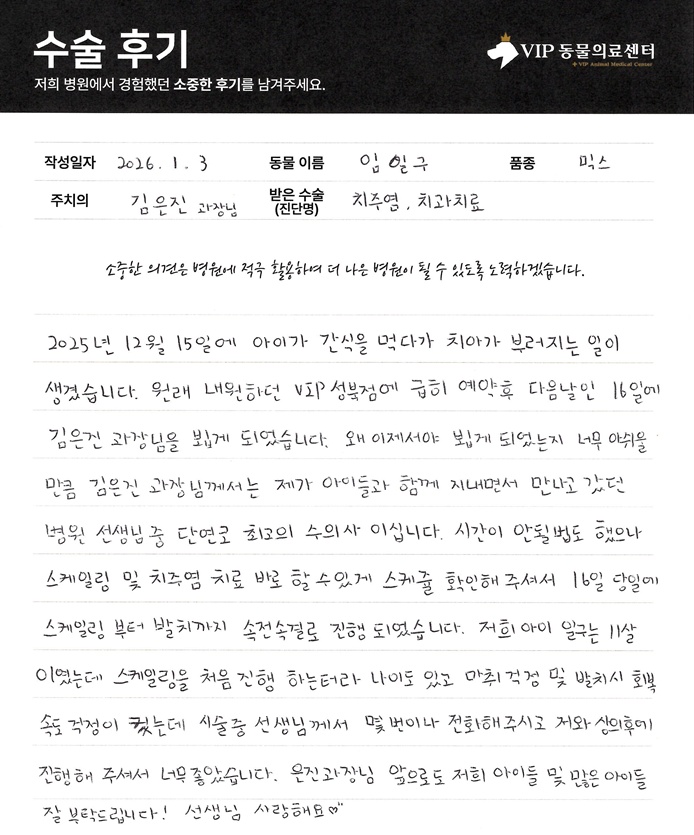 수술 후기
저희 병원에서 경험했던 소중한 후기를 남겨주세요.
VIP 동물의료센터
VIP Animal Medical Center
작성일자 2026. 1. 3 동물 이름 임일구 품종 믹스
주치의 김은진 과장님 받은 수술 (진단명) 치주염, 치과치료
소중한 의견은 병원에 적극 활용하여 더 나은 병원이 될 수 있도록 노력하겠습니다.
2025년 12월 15일에 아이가 간식을 먹다가 치아가 부러지는 일이
생겼습니다. 원래 내원하던 VIP 성북점에 급히 예약후 다음날인 16일에
김은진 과장님을 뵙게 되었습니다. 왜 이제서야 뵙게 되었는지 너무 아쉬울
만큼 김은진 과장님께서는 제가 아이들과 함께 지내면서 만나고 갔던
병원 선생님중 단연코 최고의 수의사 이십니다. 시간이 안될법도 했으나
스케일링 및 치주염 치료 바로 할 수 있게 스케쥴 확인해 주셔서 16일 당일에
스케일링 부터 발치까지 속전속결로 진행 되었습니다. 저희 아이 일구는 11살
이였는데 스케일링을 처음 진행 하는터라 나이도 있고 마취 걱정 및 발치시 회복
속도 걱정이 컸는데 시술중 선생님께서 몇번이나 전화해주시고 저와 상의후에
진행해 주셔서 너무좋았습니다. 은진과장님 앞으로도 저희 아이들 및 많은 아이들
잘 부탁드립니다! 선생님 사랑해요♡